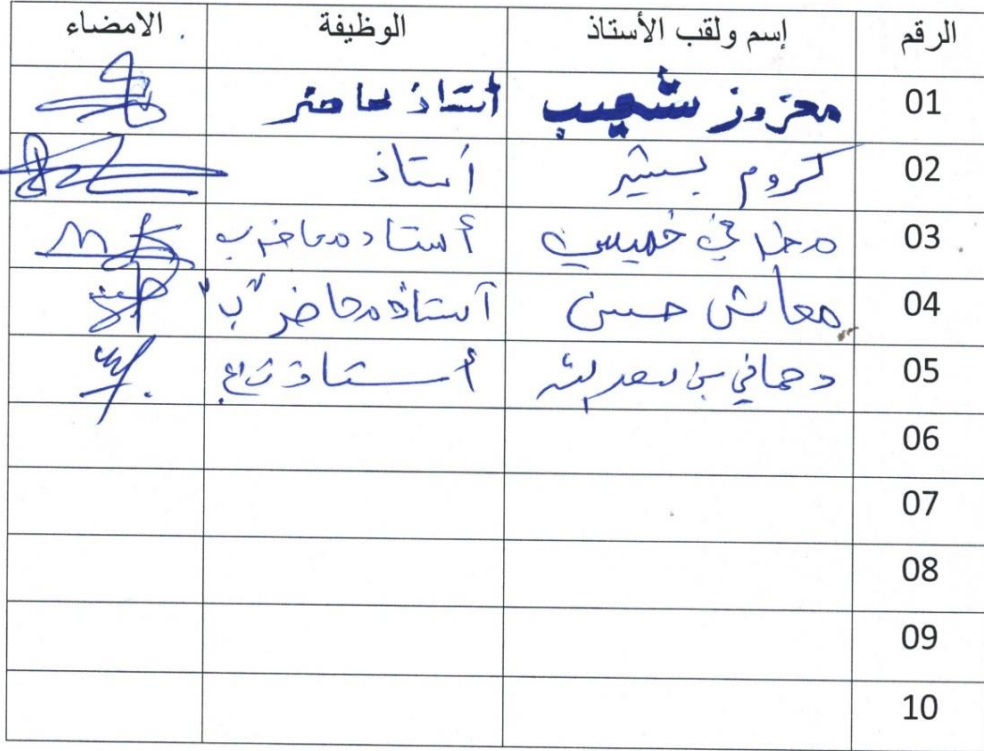 الرقم إسم ولقب الأستاذ الوظيفة الامضاء
01 معزوز شعيب أستاذ محاضر
02 كروم بشير أستاذ
03 خميسي أستاذ محاضر ب
04 معاش حسن أستاذ محاضر "ب"
05 دحماني بن سعد الله أستاذ
06
07
08
09
10